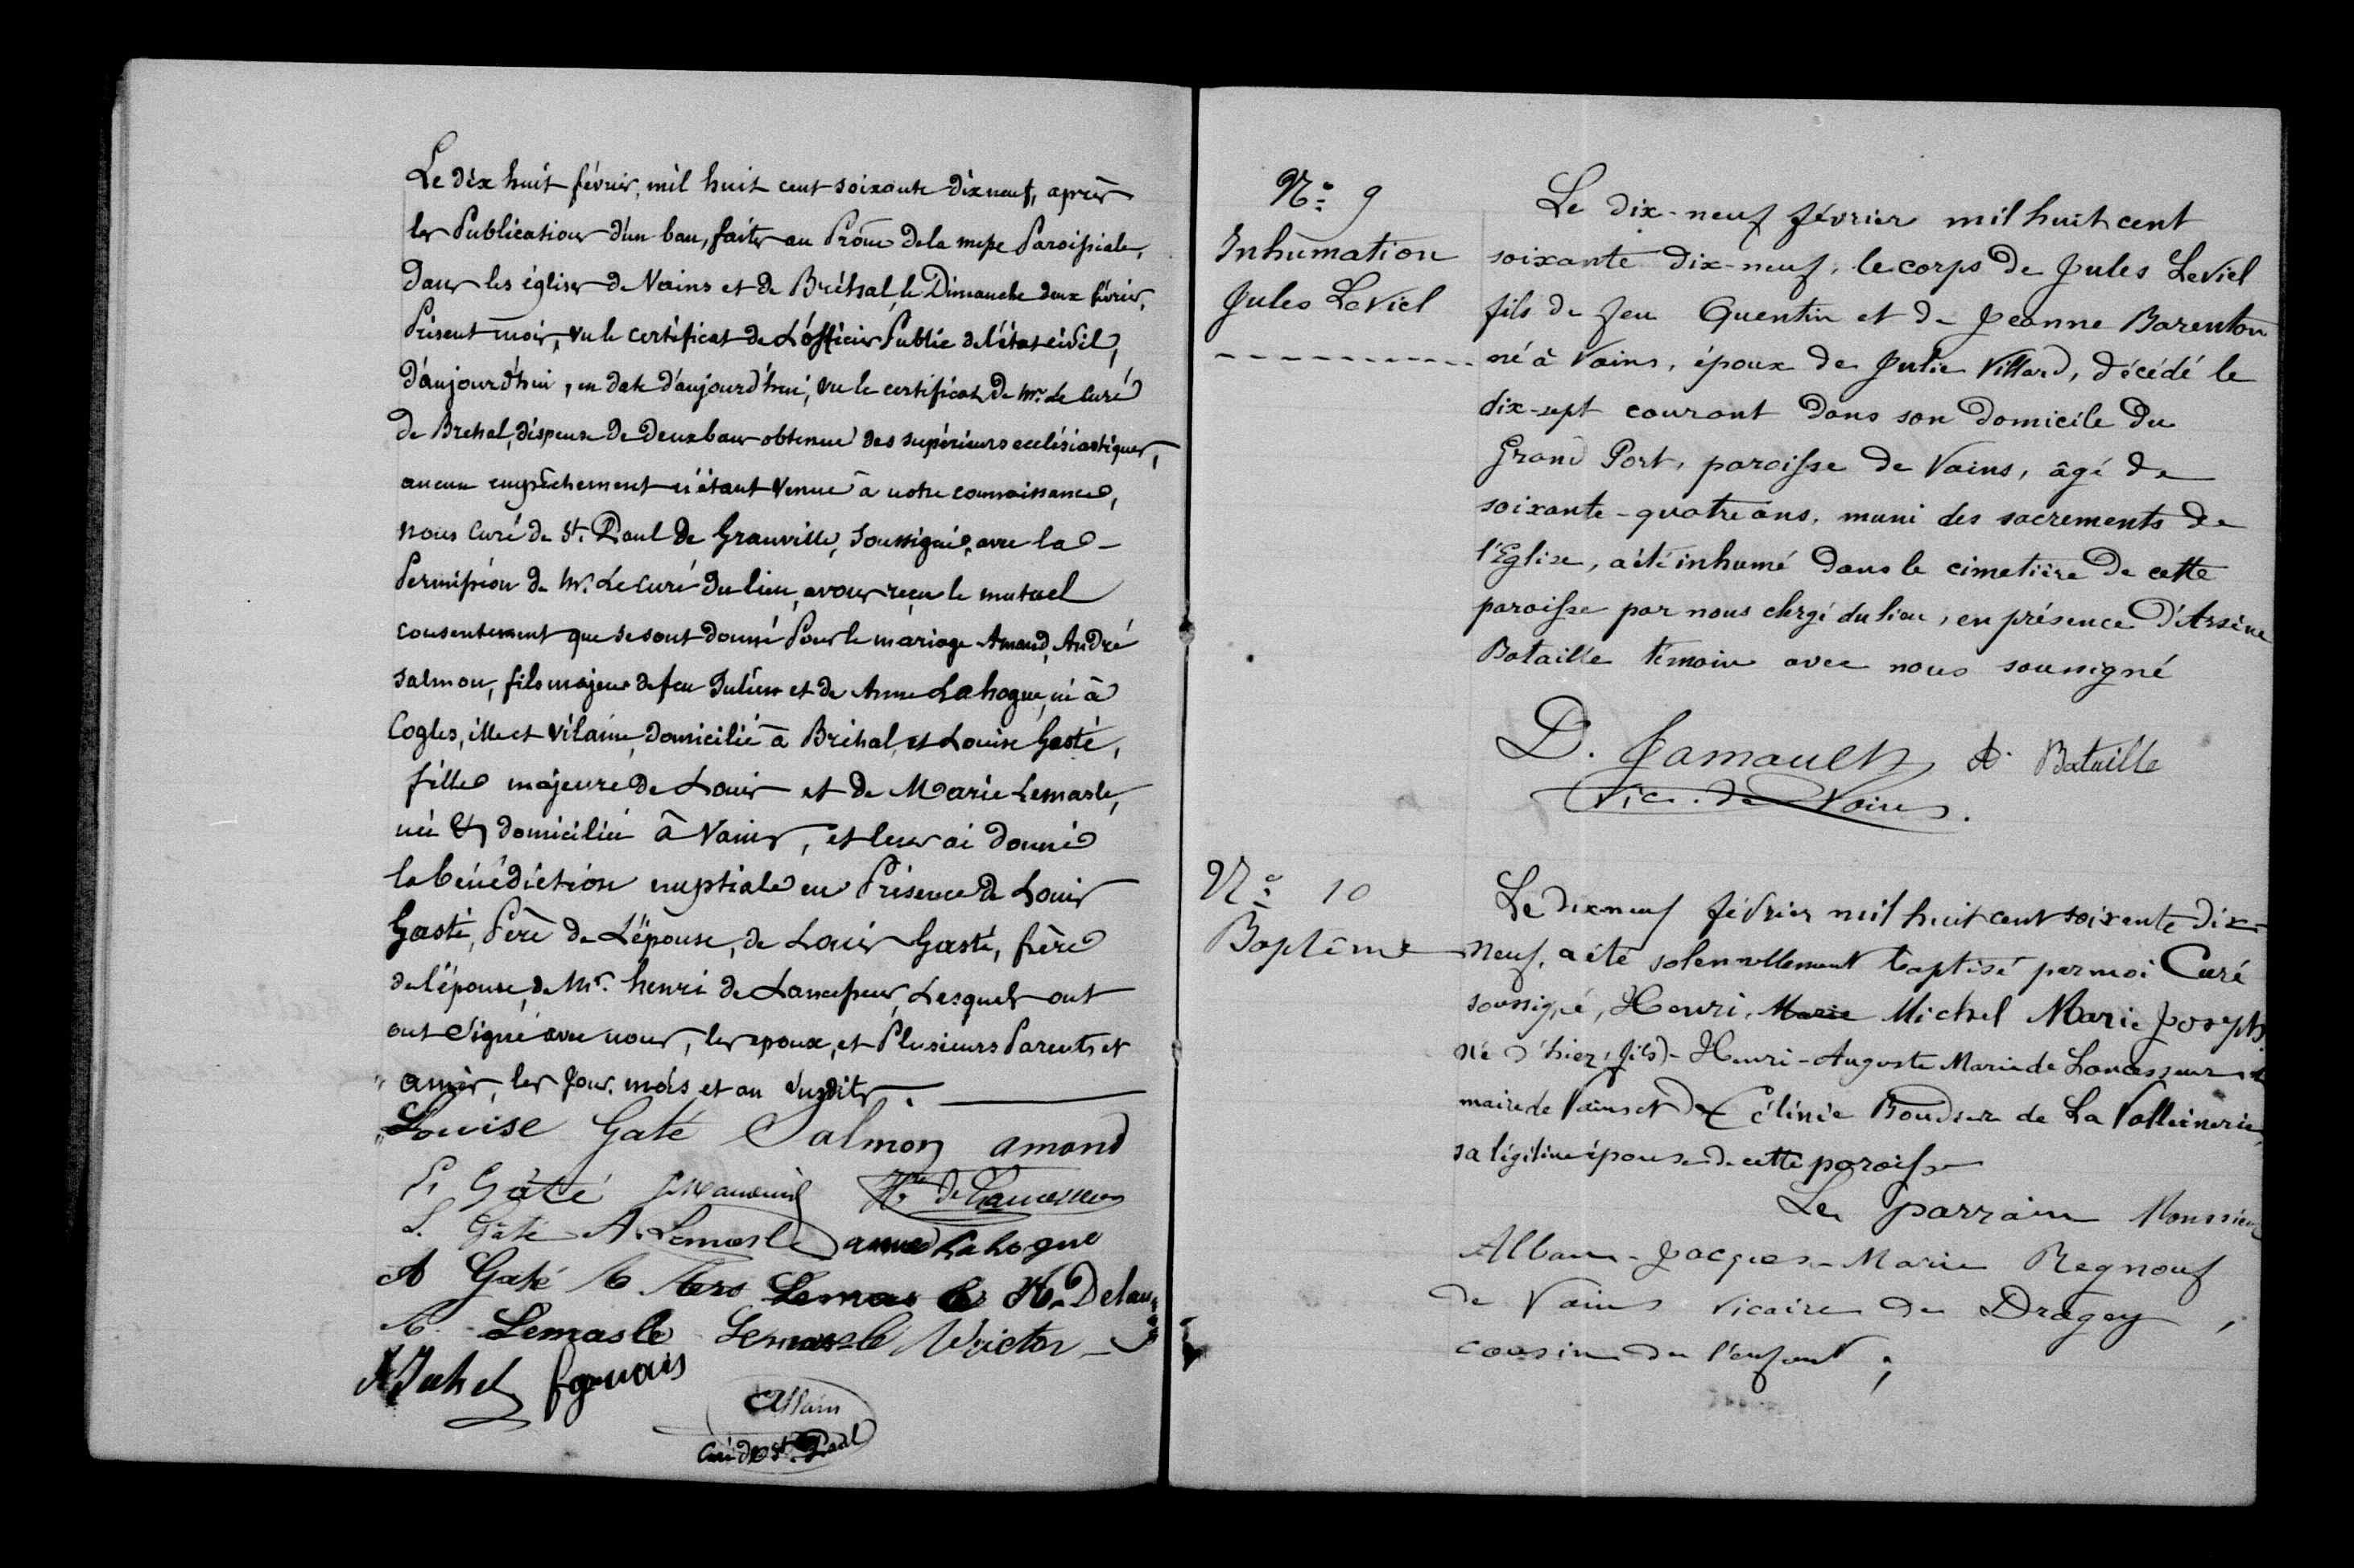 Le dix huit février, mil huit cent soixante dix neuf, après
les Publications d'un ban, faites au Prône de la messe Paroissiale,
dans les églises de Vains et de Bréhal, le Dimanche deux février,
Présent mois, vu le certificat de L'officier Public de l'état civil,
d'aujourd'hui, en date d'aujourd'hui, vu le certificat de Mr. Le Curé
de Brehal, dispense de deux bans obtenue des supérieurs ecclésiastiques,
aucun empêchement n'étant venue à notre connaissance,
nous Curé de St. Paul de Granville, soussigné, avec la
Permission de Mr. Le Curé du lieu, avons reçu le mutuel
consentement que se sont donné Pour le mariage Amand, André
Salmon, fils majeur de feu Julien et de Anne Lahogue, né à
Cogles, ille et vilaine, domicilié à Bréhal, et Louise Gasté,
fille majeure de Louis et de Marie Lemasle,
née et domiciliée à Vains, et leur ai donné
la bénédiction nuptiale en Présence de Louis
Gasté, Père de L'épouse, de Louis Gasté, frère
de l'épouse, de Mr. henri de Lancesseur, Lesquels ont
ont signé avec nous, les epoux, et Plusieurs Parents et
amis, les jour, mois et an susdits.
Louise Gaté Salmon amand
P. Gâté Hte de Lancesseur
L. Gâté A. Lemasle anne Lahogue
A Gaté Lemasle H. Delau
Lemasle Lemasle Victor
Allain
Curé de St. Paul
N° 9
Inhumation
Jules LeViel
Le dix-neuf février mil huit cent
soixante dix-neuf, le corps de Jules LeViel
fils de feu Quentin et de Jeanne Barenton
né à Vains, époux de Julie Villard, décédé le
dix-sept courant dans son domicile du
Grand Port, paroisse de Vains, âgé de
soixante-quatre ans, muni des sacrements de
l'Eglise, a été inhumé dans le cimetière de cette
paroisse par nous clergé du lieu, en présence d'Arsène
Bataille témoin avec nous soussigné
D. Jamault A. Bataille
Vic. de Vains.
N° 10
Baptême
Le dix neuf février mil huit cent soixante dix-
neuf, a été solennellement baptisé par moi Curé
soussigné, Henri, Marie Michel Marie Joseph
né d'hier, fils d'Henri-Auguste Marie de Lancesseur
maire de Vains et de Célinie Boudier de La Valleinerie,
sa légitime épouse de cette paroisse
Le parrain Monsieur
Alban-Jacques-Marie Regnouf
de Vains vicaire de Dragey,
cousin de l'enfant;